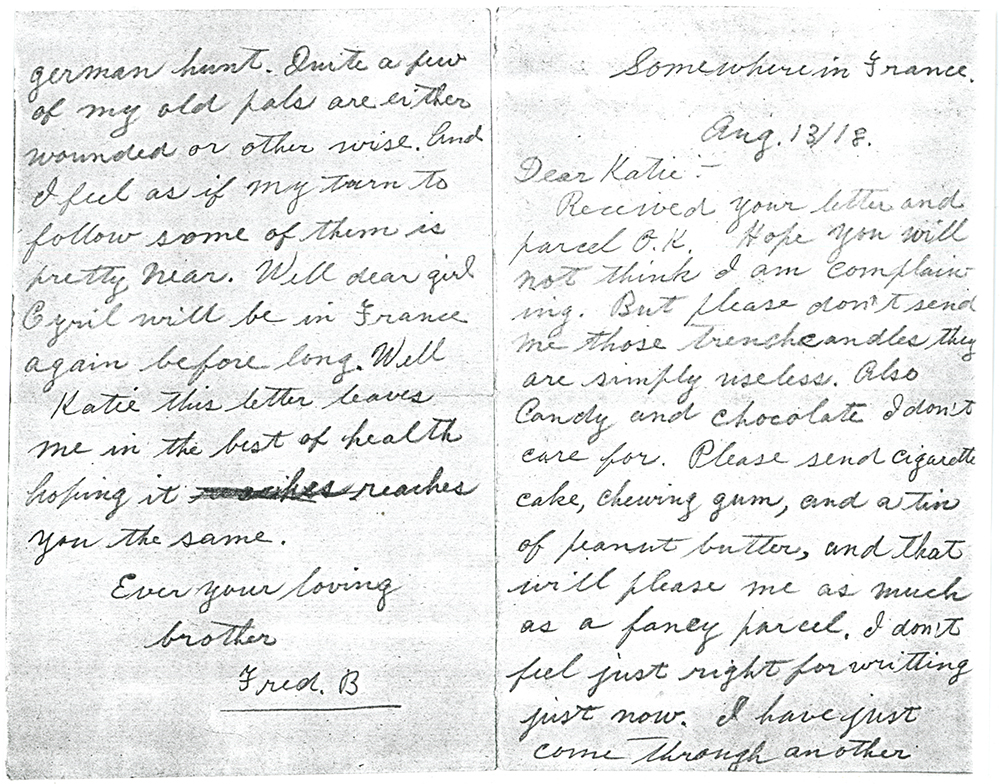 Somewhere in France.
Aug. 13/18.
Dear Katie:-
Received your letter and
parcel O.K. Hope you will
not think I am complain-
ing. But please don't send
me those trench candles they
are simply useless. Also
Candy and chocolate I don't
care for. Please send cigarette
cake, chewing gum, and a tin
of peanut butter, and that
will please me as much
as a fancy parcel. I don't
feel just right for writting
just now. I have just
come through another
german hunt. Quite a few
of my old pals are either
wounded or other wise. And
I feel as if my turn to
follow some of them is
pretty near. Well dear girl
Cyril will be in France
again before long. Well
Katie this letter leaves
me in the best of health
hoping it reaches reaches
you the same.
Ever your loving
brother
Fred. B